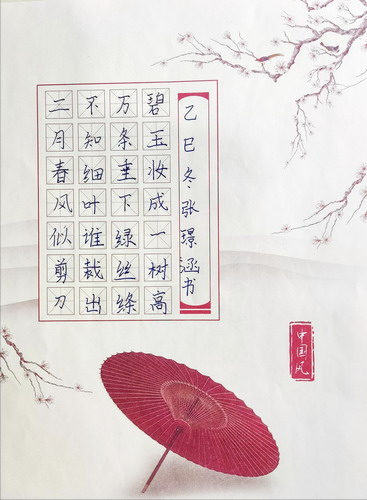 乙巳冬张璟涵书
碧玉妆成一树高
万条垂下绿丝绦
不知细叶谁裁出
二月春风似剪刀
中国风